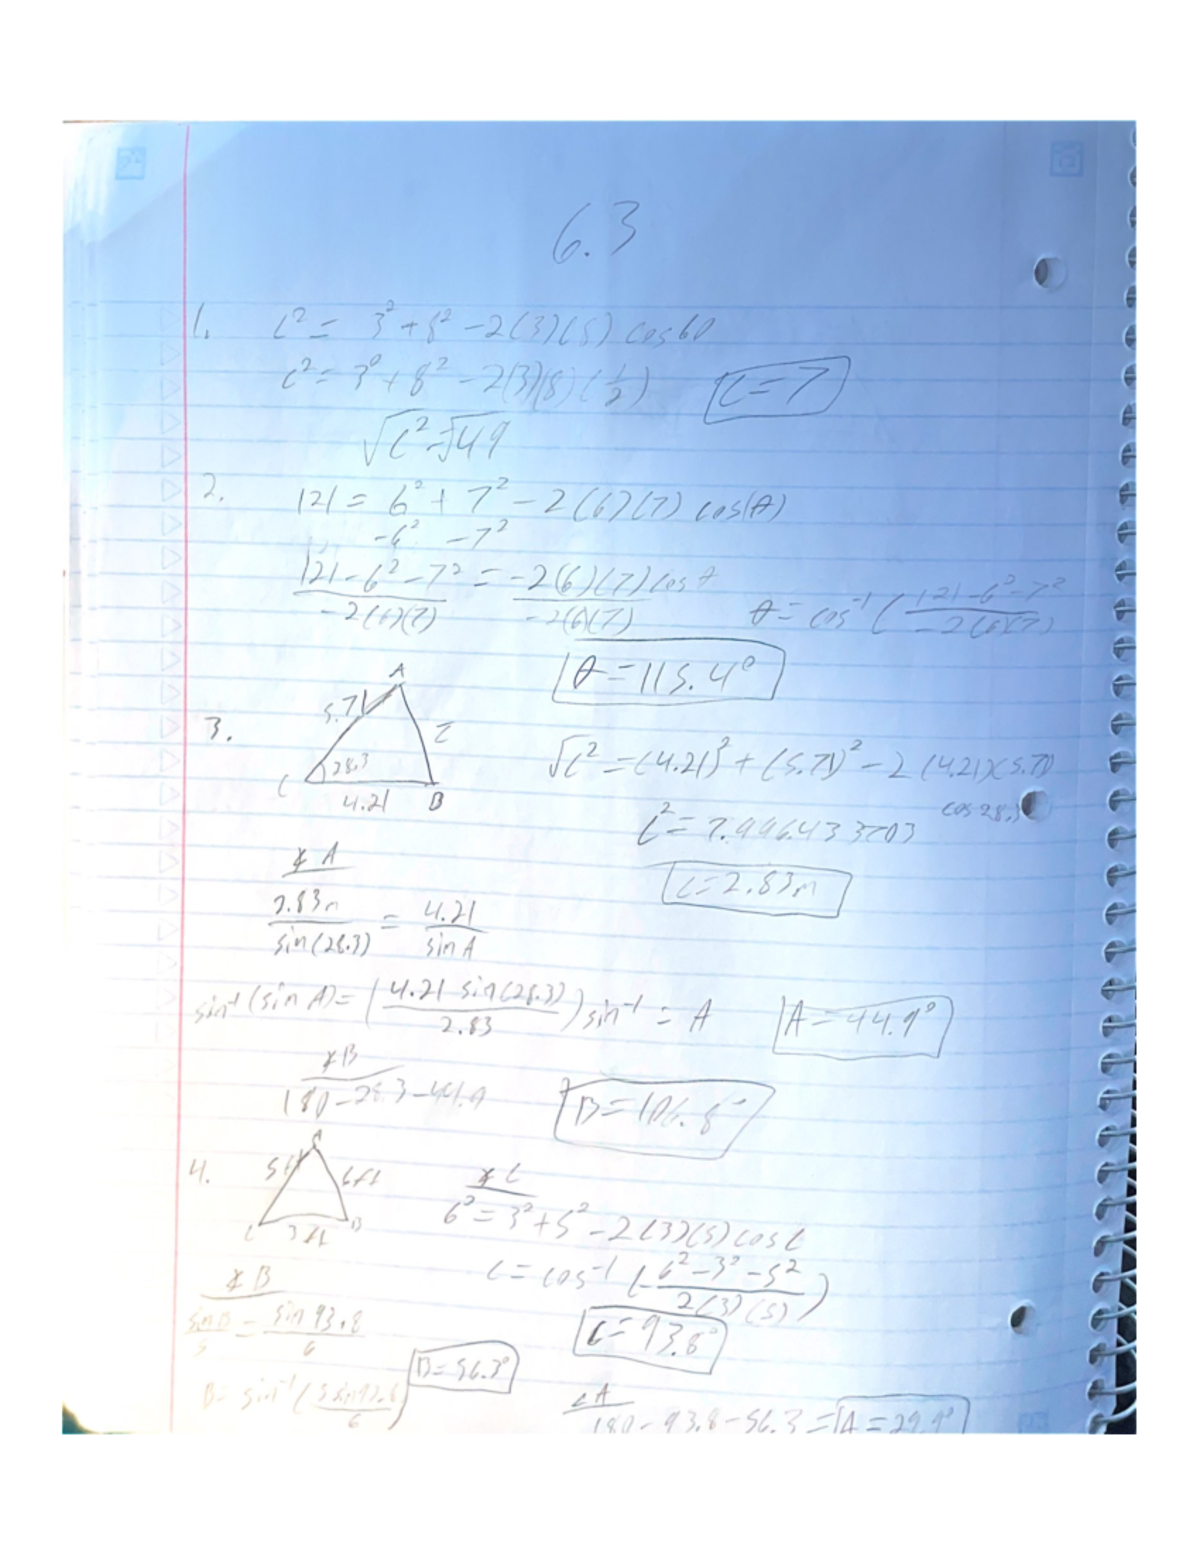 6.3
1. c² = 3² + 8² - 2(3)(8) cos60
c² = 3² + 8² - 2(3)(8)(1/2)
c = 7
√c² = √49
2. 121 = 6² + 7² - 2(6)(7) cos(θ)
-6² -7²
121 - 6² - 7² / -2(6)(7) = -2(6)(7)cosθ / -2(6)(7)
θ = cos⁻¹ (121 - 6² - 7² / -2(6)(7)
θ = 115.4°
3.
A
5.71
c
28.3
C
4.21
B
√c² = (4.21)² + (5.71)² - 2(4.21)(5.71)
cos 28.3
c² = 7.996433703
c = 2.83m
∡A
2.83m / sin(28.3) = 4.21 / sin A
sin⁻¹(sin A) = (4.21 sin(28.3) / 2.83) sin⁻¹ = A
A = 44.9°
∡B
180 - 28.3 - 44.9
B = 106.8°
4.
A
5ft
6ft
C
3ft
B
∡C
6² = 3² + 5² - 2(3)(5)cosC
C = cos⁻¹ (-6² - 3² - 5² / 2(3)(5))
C = 93.8°
∡B
sinB / 5 = sin 93.8 / 6
B = sin⁻¹ (5 sin 93.8 / 6)
B = 56.3°
∠A
180 - 93.8 - 56.3 = A = 29.9°